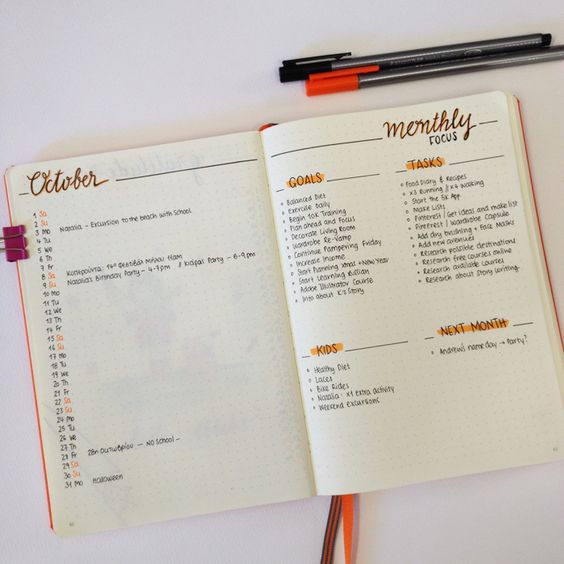 October
1 Sa
2 Su
3 Mo Natalia - Excursion to the beach with school
4 Tu
5 We
6 Th
7 Fr
8 Sa
9 Su Natalia's Birthday Party - 4-7 pm // Kids Party - 6-9pm
10 Mo
11 Tu
12 We
13 Th
14 Fr
15 Sa
16 Su
17 Mo
18 Tu
19 We
20 Th
21 Fr
22 Sa
23 Su
24 Mo
25 Tu
26 We
27 Th
28 Fr 28η Οκτωβρίου - NO SCHOOL -
29 Sa
30 Su
31 Mo Halloween
Monthly
FOCUS
GOALS
Balanced Diet
Exercise Daily
Begin 10K Training
Plan ahead and Focus
Decorate Living Room
Wardrobe Re-vamp
Continue Pampering Friday
Increase Income
Start Planning Xmas + New Year
Start Learning
Adobe Illustrator Course
Info about K's Story
TASKS
Food Diary & Recipes
x3 Running // x4 Walking
Start the 5K App
Make Lists
Pinterest / Get ideas and make list
Pinterest / Wardrobe Capsule
Add dry brushing + Face Masks
Add new avenues
Research possible destinations
Research free courses online
Research available courses
Research about story writing
KIDS
Healthy Diet
Laces
Bike Rides
Natalia - x1 extra activity
Weekend excursions
NEXT MONTH
Andrew's nameday → Party?